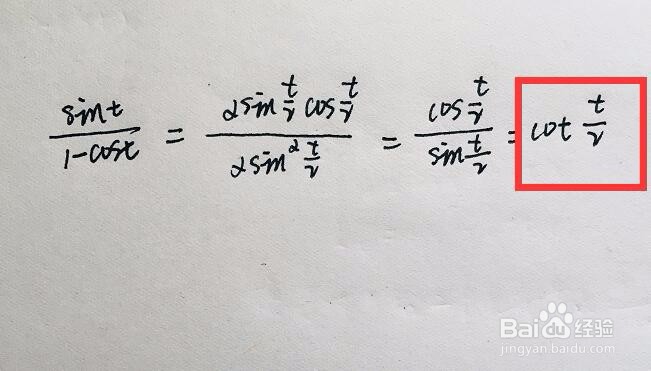 sin t / (1 - cos t) = 2 sin t/2 cos t/2 / (2 sin² t/2) = cos t/2 / sin t/2 = cot t/2
Baidu经验
jingyan.baidu.com